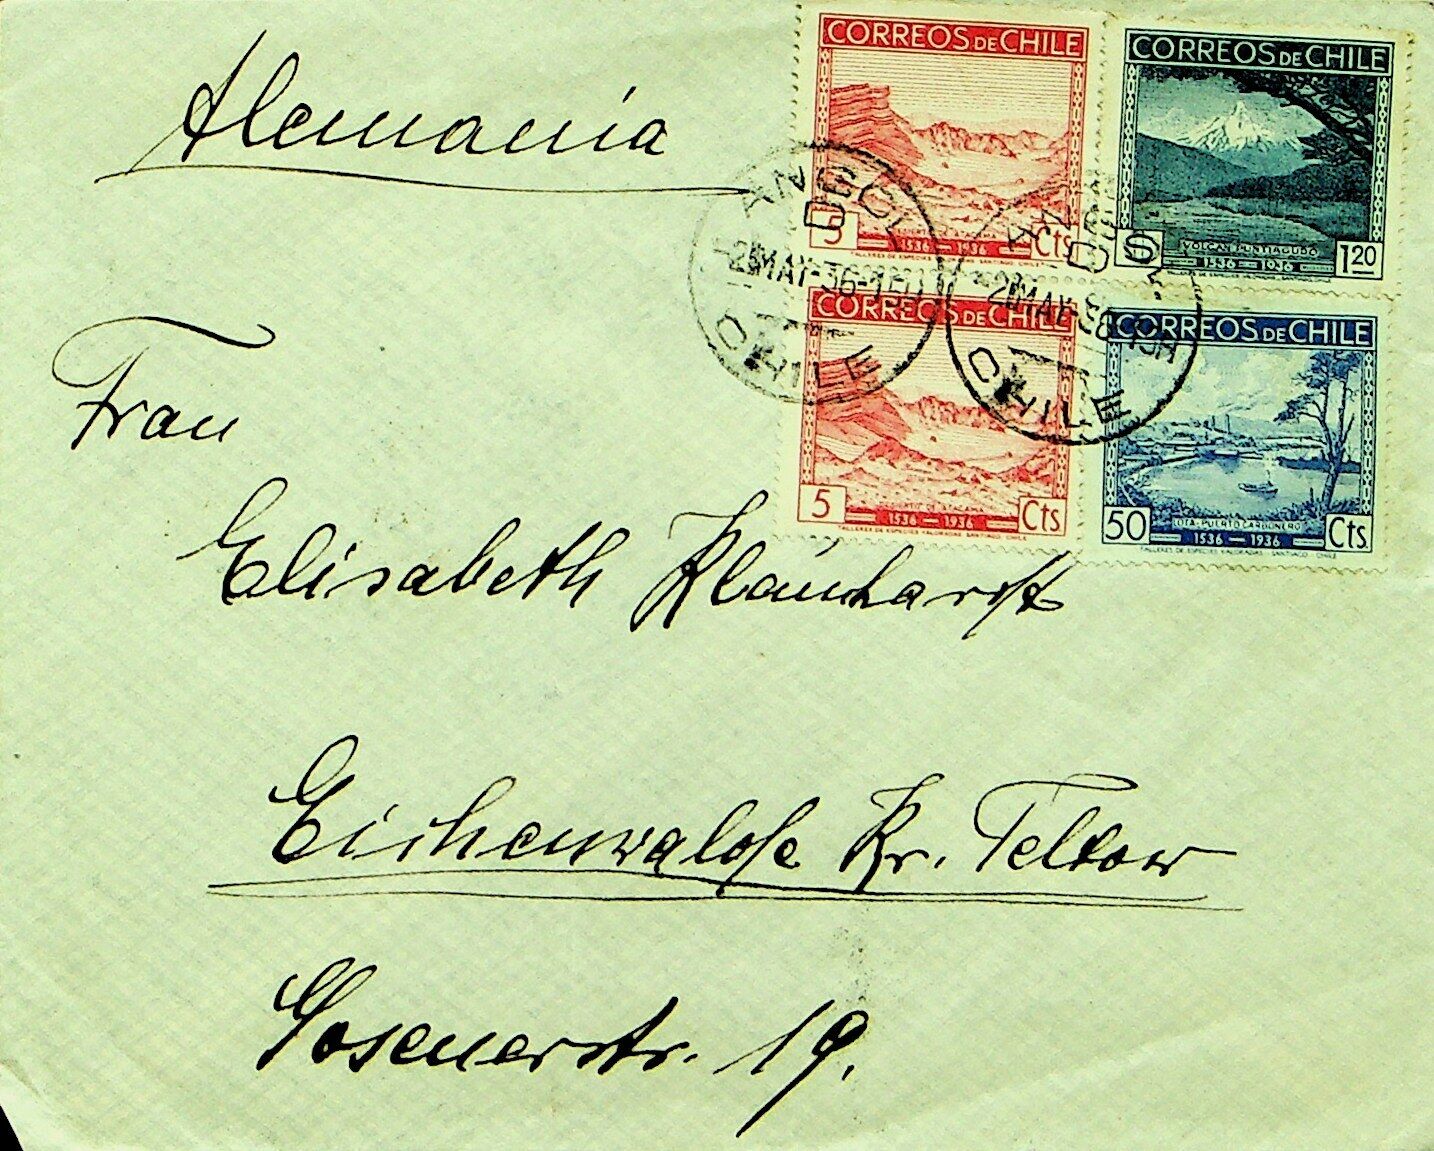 Alemania
CORREOS DE CHILE
5 Cts
DESIERTO DE ATACAMA
1536 — 1936
TALLERES DE ESPECIES VALORADAS SANTIAGO CHILE
CORREOS DE CHILE
$ 1.20
VOLCAN PUNTIAGUDO
1536 — 1936
ANGOL
CHILE
MAY-36
CHILE
CORREOS DE CHILE
5 Cts
DESIERTO DE ATACAMA
1536 — 1936
TALLERES DE ESPECIES VALORADAS SANTIAGO CHILE
CORREOS DE CHILE
50 Cts.
LOTA-PUERTO CARBONERO
1536 — 1936
TALLERES DE ESPECIES VALORADAS SANTIAGO - CHILE
Frau
Elisabeth
Eichenwalde Kr. Teltow
Posenerstr. 19.